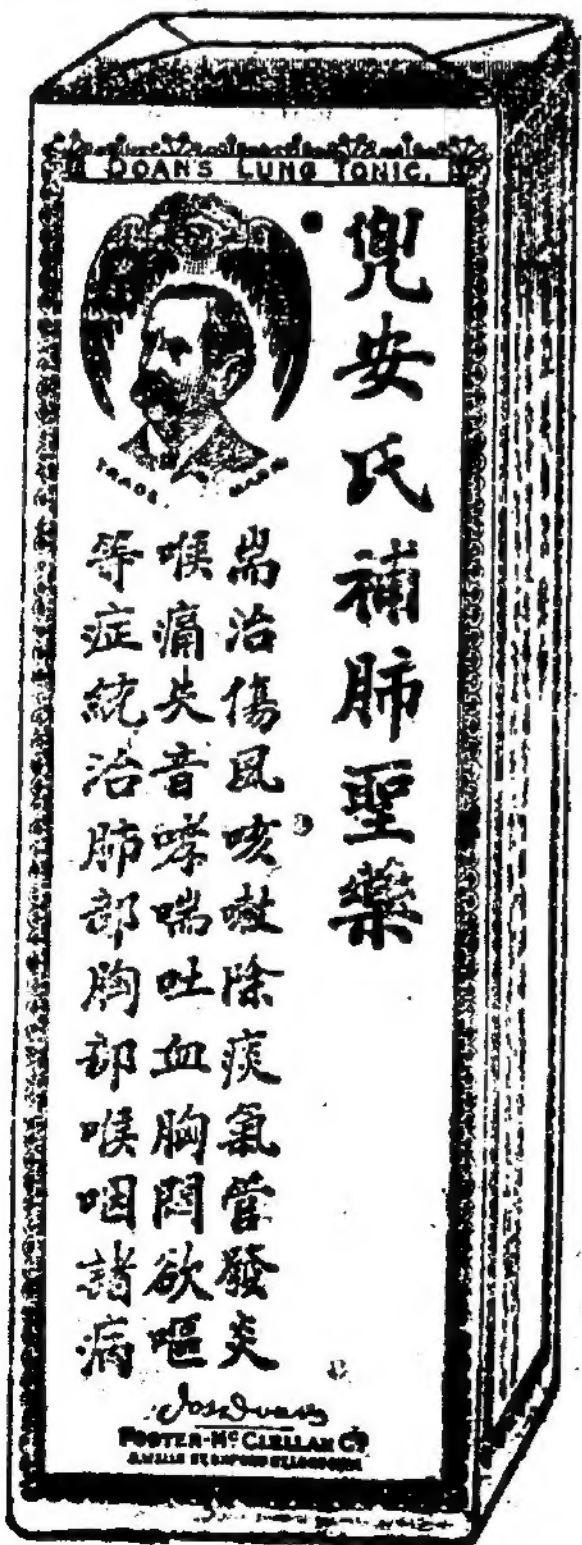 DOAN'S LUNG TONIC.
兜安氏補肺聖藥
TRADE MARK
耑治傷風咳嗽除痰氣管發炎
喉痛失音哮喘吐血胸悶欲嘔
等症統治肺部胸部喉咽諸病
Jas Doan
FOSTER-McCLELLAN Co